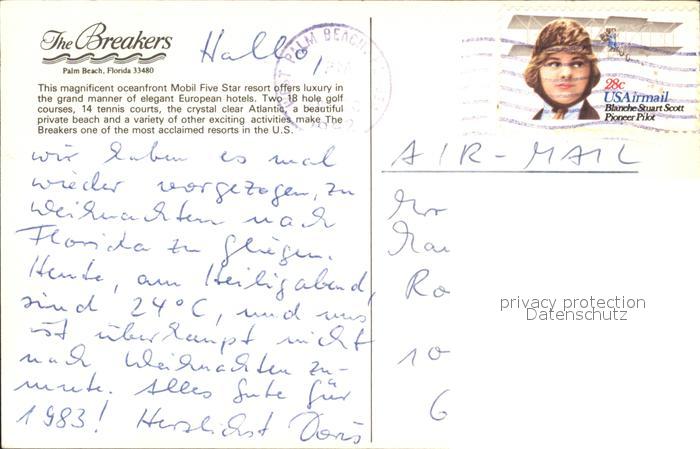 The Breakers
Palm Beach, Florida 33480
This magnificent oceanfront Mobil Five Star resort offers luxury in
the grand manner of elegant European hotels. Two 18 hole golf
courses, 14 tennis courts, the crystal clear Atlantic, a beautiful
private beach and a variety of other exciting activities make The
Breakers one of the most acclaimed resorts in the U.S.
Hallo,
wir haben es mal
wieder vorgezogen, zu
Weihnachten nach
Florida zu fliegen.
Heute, am Heiligabend,
sind 24°C, und uns
ist überhaupt nicht
nach Weihnachten zu-
mute. Alles Gute für
1983! Herzlichst Doris
WEST PALM BEACH
28c
USAirmail
Blanche Stuart Scott
Pioneer Pilot
AIR-MAIL
Ro
10
6
privacy protection
Datenschutz